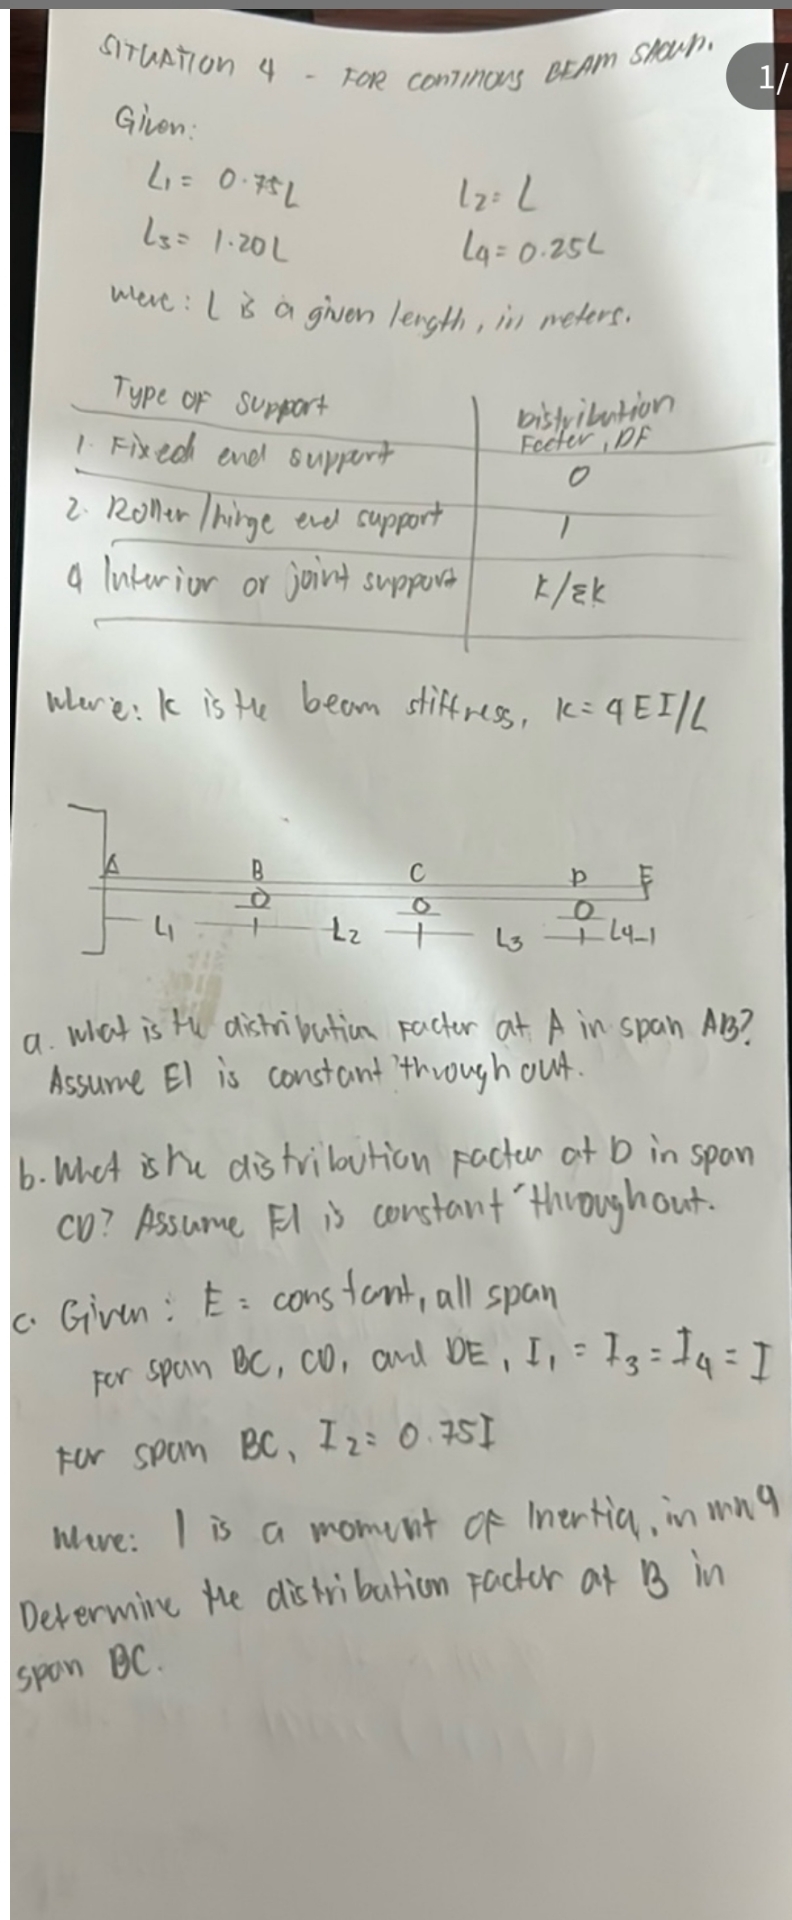 SITUATION 4 - FOR CONTINOUS BEAM SHOWN.
1/
Given:
L1 = 0.75L L2 = L
L3 = 1.20L L4 = 0.25L
Where: L is a given length, in meters.
Type of Support Distribution Factor, DF
1. Fixed end support 0
2. Roller/hinge end support 1
4 Interior or joint support K/ΣK
where: k is the beam stiffness, K = 4EI/L
A B C D E
L1 L2 L3 L4
a. What is the distribution Factor at A in span AB?
Assume EI is constant through out.
b. What is the distribution Factor at D in span
CD? Assume EI is constant throughout.
c. Given: E = constant, all span
For span BC, CD, and DE, I1 = I3 = I4 = I
For span BC, I2 = 0.75I
Where: I is a moment of Inertia, in mm4
Determine the distribution Factor at B in
span BC.